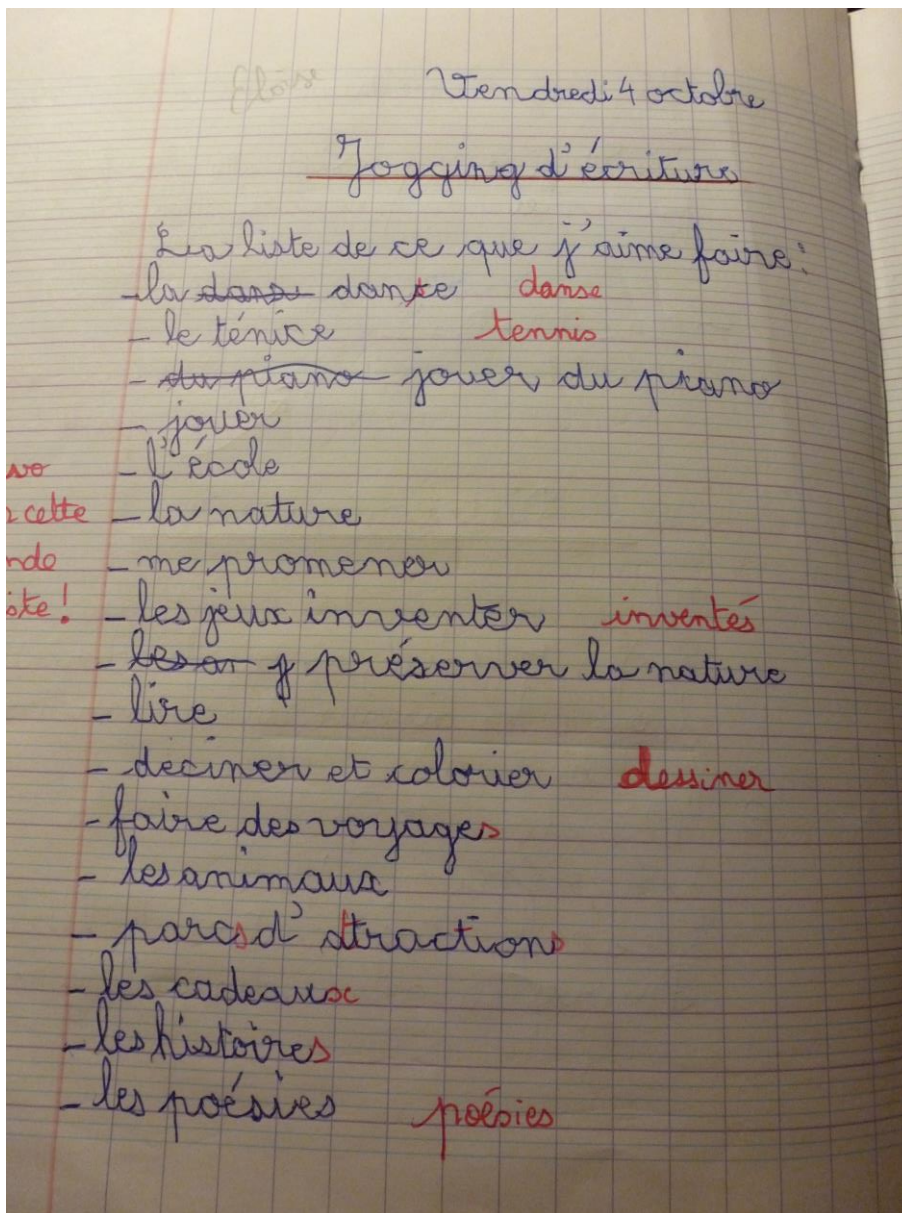 Eloïse
Vendredi 4 octobre
Jogging d'écriture
La liste de ce que j'aime faire:
-la dans danse danse
- le ténice tennis
- du piano jouer du piano
- jouer
- l'école
cette - la nature
- me promener
- les jeux inventer inventés
- préserver la nature
- lire
- déciner et colorier dessiner
- faire des voyages
- les animaux
- parcs d'attractions
- les cadeaux
- les histoires
- les poésies poésies